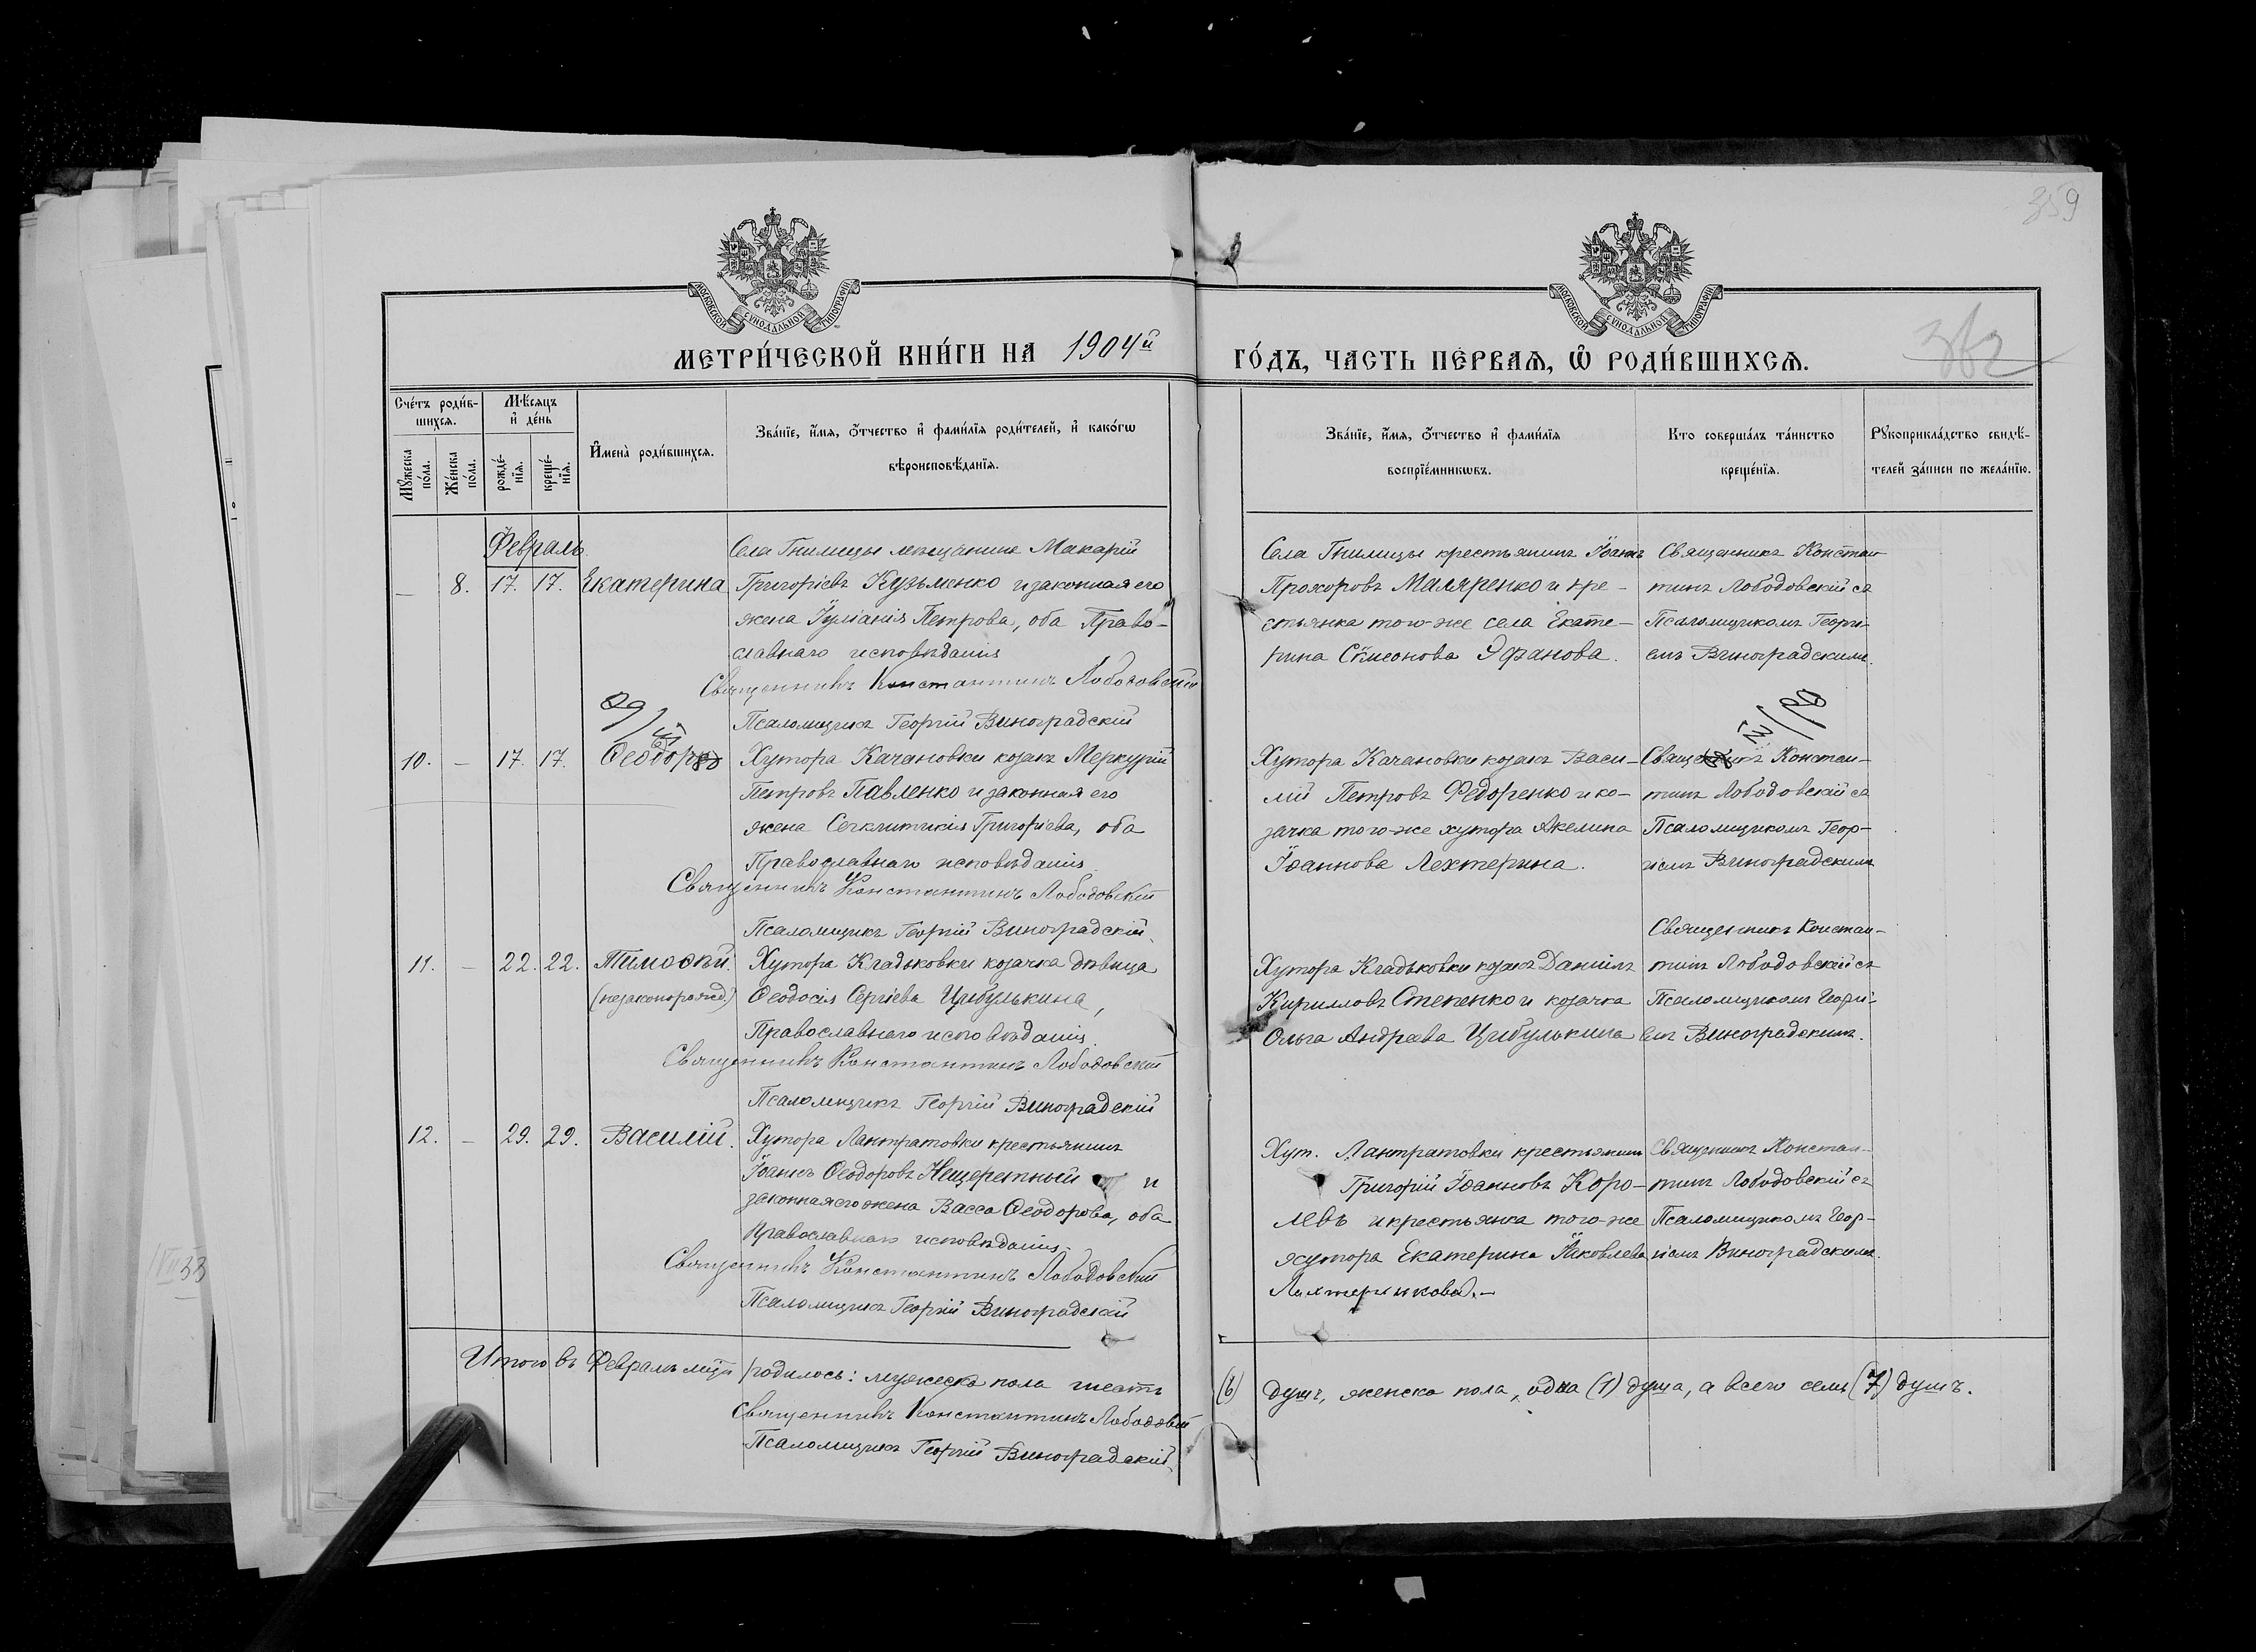 359
МОСКОВСКОЙ СѴНОДАЛЬНОЙ ТИПОГРАФІИ
МОСКОВСКОЙ СѴНОДАЛЬНОЙ ТИПОГРАФІИ
362
МЕТРИ́ЧЕСКОЙ КНИ́ГИ НА 1904й ГО́ДЪ, ЧАСТЬ ПЕ́РВАЯ, Ѡ РОДИ́ВШИХСЯ.
Сче́тъ роди́в-
шихся.
Му́жеска по́ла.
Же́нска по́ла.
Мѣ́сяцъ и де́нь
рожде́-нія.
креще́-нія.
Имена̀ роди́вшихся.
Зва́ніе, и́мя, о́тчество и фами́лія роди́телей, и како́гѡ
вѣроисповѣ́данія.
Зва́ніе, и́мя, о́тчество и фами́лія
воспріе́мникѡвъ.
Кто соверша́лъ та́инство
креще́нія.
Рукоприкла́дство свидѣ́-
телей за́писи по жела́нію.
Февраль
— 8. 17. 17. Екатерина
Села Гнилицы мещанинъ Макарій
Григоріевъ Кузьменко и законная его
жена Іуліанія Петрова, оба Право-
славнаго исповѣданія
Священникъ Константинъ Лободовскій
Псаломщикъ Георгій Виноградскій
Села Гнилицы крестьянинъ Іоаннъ
Прохоровъ Маляренко и кре-
стьянка того-же села Екате-
рина Сѵмеонова
Священникъ Констан-
тинъ Лободовскій съ
Псаломщикомъ Георгі-
емъ Виноградскимъ.
10. — 17. 17. Ѳеодоръ
Хутора Качановки козакъ Меркурій
Петровъ Павленко и законная его
жена Сегклитикія Григоріева, оба
Православнаго исповѣданія
Священникъ Константинъ Лободовскій
Псаломщикъ Георгій Виноградскій
Хутора Качановки козакъ Васи-
лій Петровъ Федоренко и ко-
зачка того-же хутора Акелина
Іоаннова Лехтерина.
Священникъ Констан-
тинъ Лободовскій съ
Псаломщикомъ Геор-
гіемъ Виноградскимъ
11. — 22. 22. Тимоѳей.
(незаконорожд.)
Хутора Кладьковки козачка дѣвица
Ѳеодосія Сергіева Цыбулькина,
Православнаго исповѣданія.
Священникъ Константинъ Лободовскій
Псаломщикъ Георгій Виноградскій
Хутора Кладьковки козакъ Даніилъ
Кирилловъ Степенко и козачка
Ольга Андреева Цыбулькина
Священникъ Констан-
тинъ Лободовскій съ
Псаломщикомъ Георгі-
емъ Виноградскимъ.
12. — 29. 29. Василій.
Хутора Лантратовки крестьянинъ
Іоаннъ Ѳеодоровъ Нещеретный и
законная его жена Васса Ѳеодорова, оба
Православнаго исповѣданія
Священникъ Константинъ Лободовскій
Псаломщикъ Георгій Виноградскій
Хут. Лантратовки крестьянинъ
Григорій Іоанновъ Коро-
левъ и крестьянка того-же
хутора Екатерина Іаковлева
Священникъ Констан-
тинъ Лободовскій съ
Псаломщикомъ Геор-
гіемъ Виноградскимъ.
Итого въ Февралѣ мцѣ родилось: мужеска пола шесть (6) душъ, женска пола, одна (1) душа, а всего семь (7) душъ.
Священникъ Константинъ Лободовскій
Псаломщикъ Георгій Виноградскій